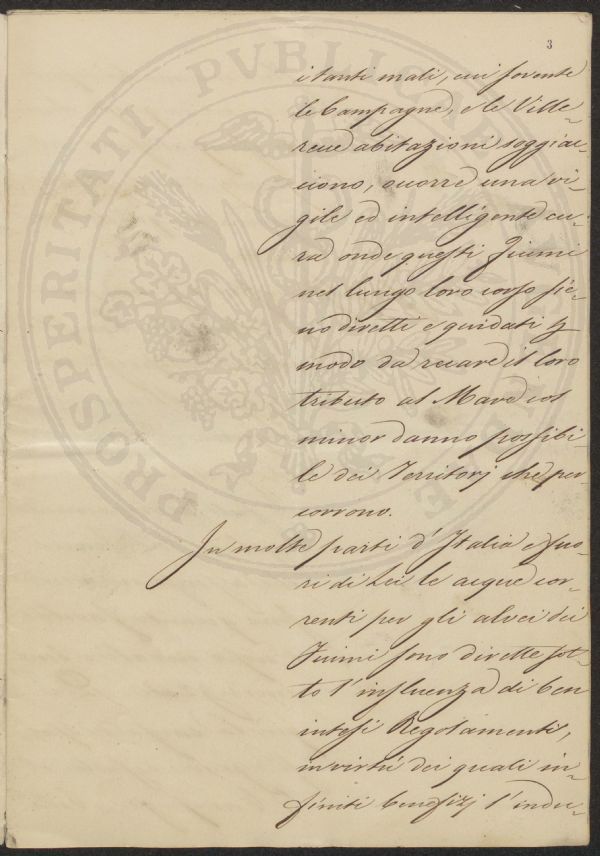 3
i tanti mali, cui sovente
le Campagne, e le Ville-
recce abitazioni soggiac-
ciono, occorre una vi-
gile ed intelligente cu-
ra onde questi Fiumi
nel lungo loro corso sie-
no diretti e guidati
modo da recare il loro
tributo al Mare col
minor danno possibi-
le dei Territorj che per-
corrono.
In molte parti d'Italia e fuo-
ri di Lei le acque cor-
renti per gli alvei dei
Fiumi sono dirette sot-
to l'influenza di ben
intesi Regolamenti,
in virtù dei quali in-
finiti benefizj l'indu-
PROSPERITATI PVBLICAE